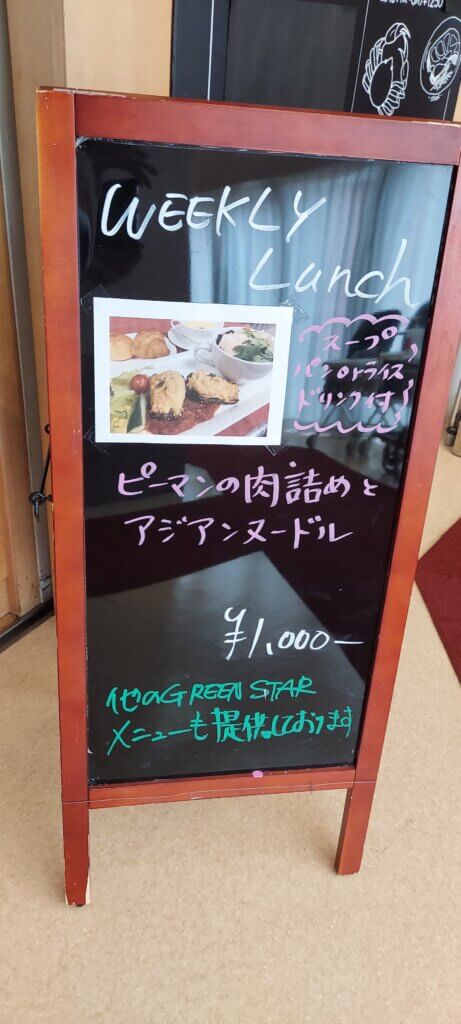 WEEKLY
Lunch
スープ
パンorライス
ドリンク付
ピーマンの肉詰めと
アジアンヌードル
¥1,000-
他のGREEN STAR
メニューも提供しております